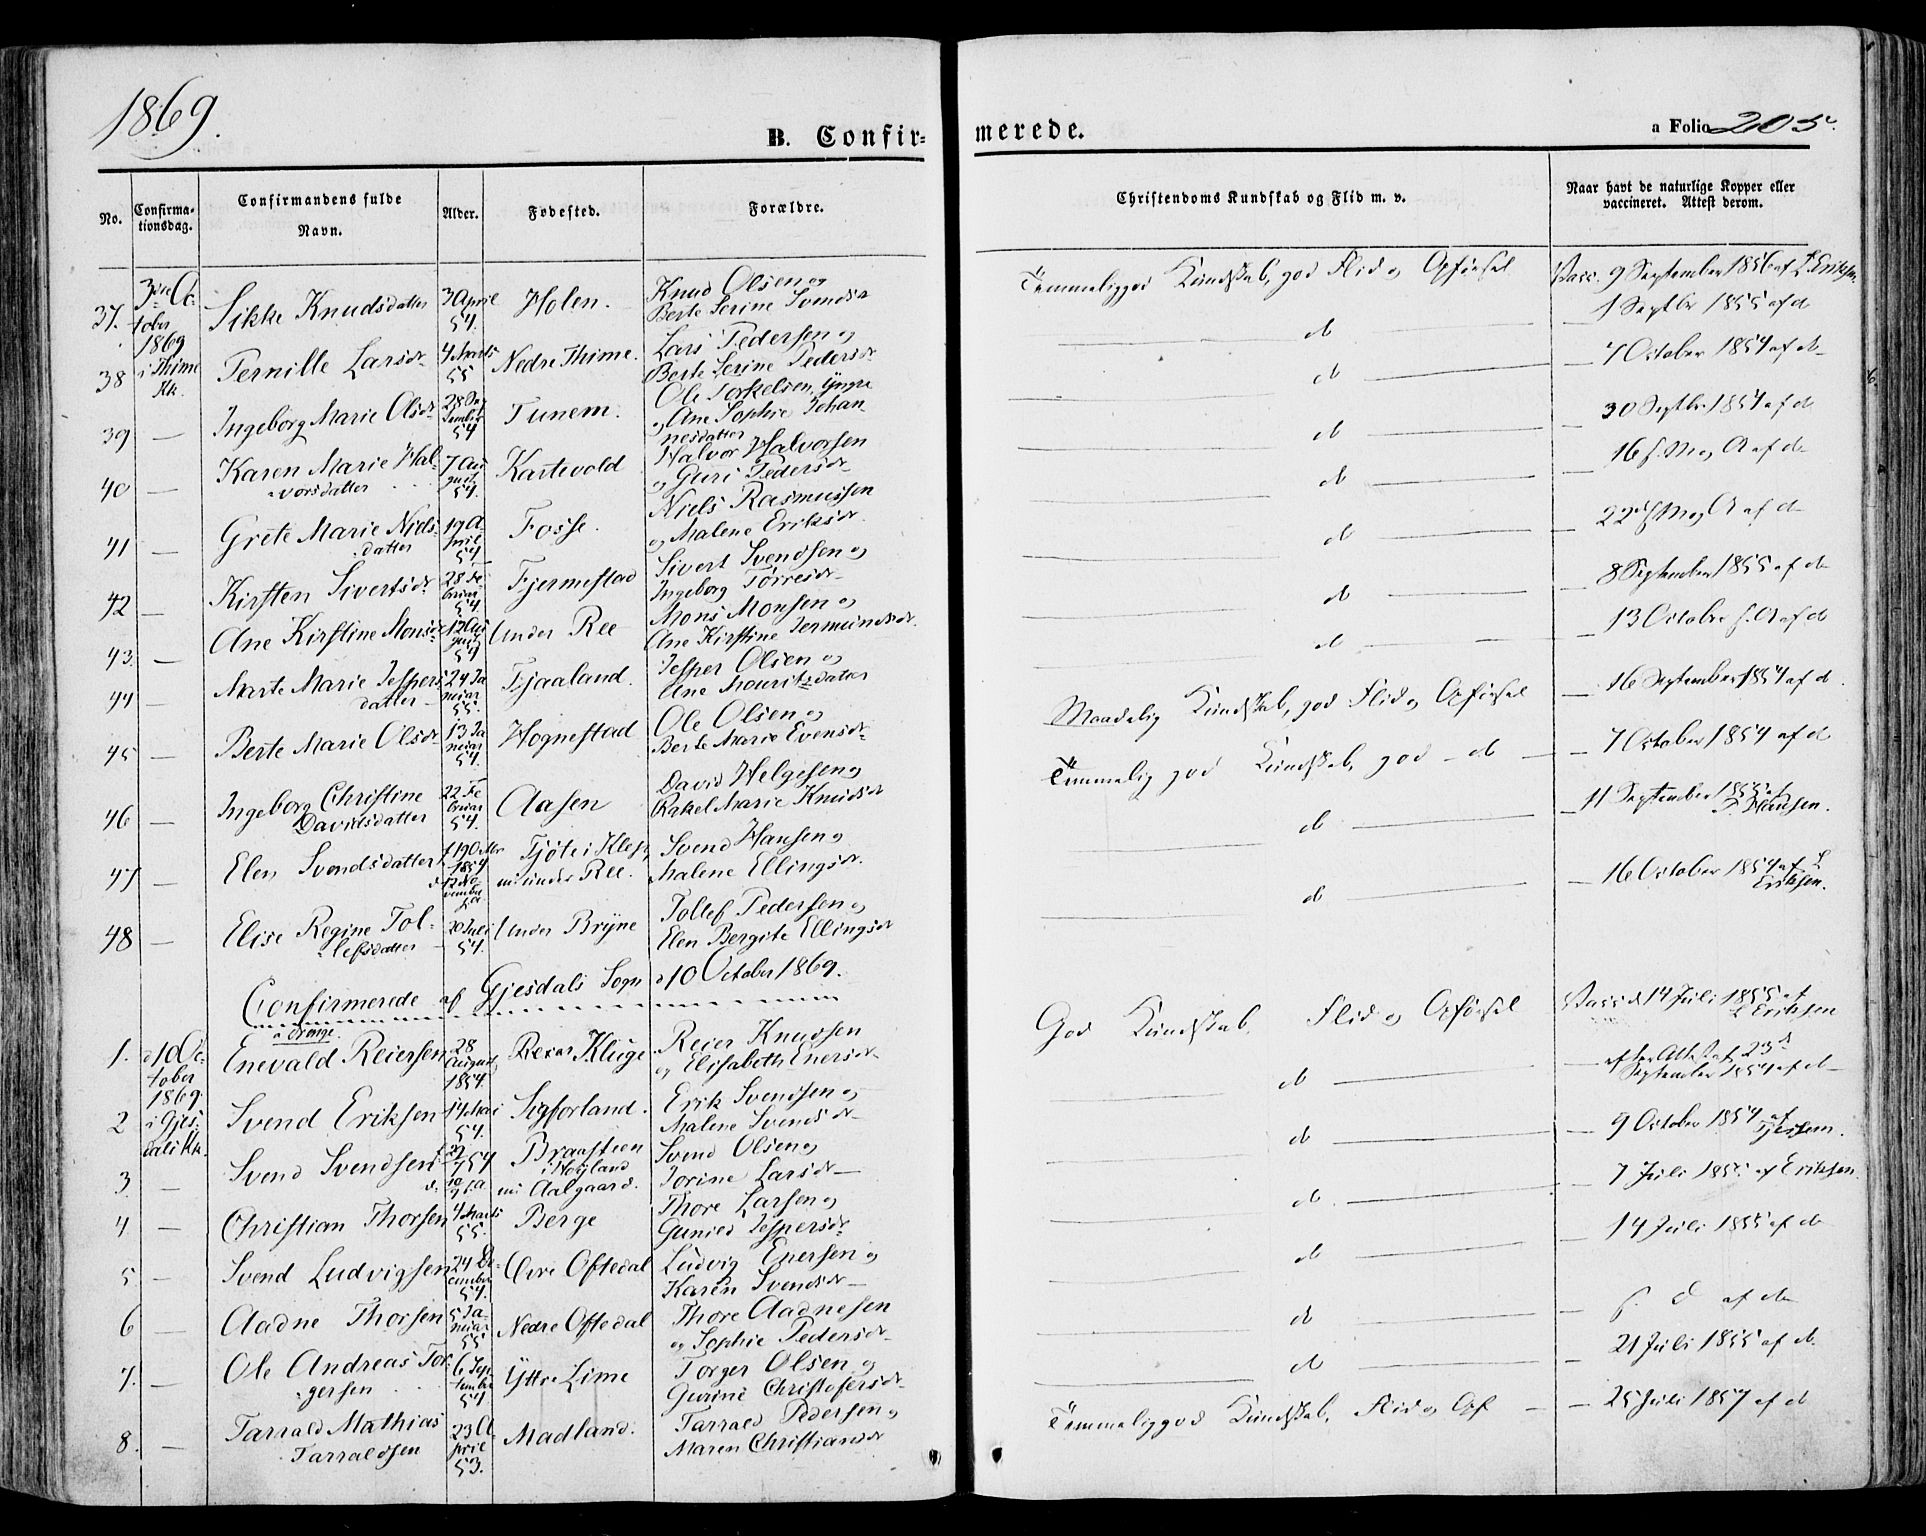 1869.
B. Confir=
merede.
a Folio 205.
No.
Confirma-
tionsdag.
Confirmandens fulde
Navn.
Alder.
Fødested.
Forældre.
Christendoms Kundskab og Flid m. v.
Naar havt de naturlige Kopper eller
vaccineret. Attest derom.
37. 3die Oc-
tober
1869
i Thime
Kk.
Sikke Knudsdatter
3 April
54.
Holen.
Knud Olsen og
Berte Serine Svendsdr
Temmelig god Kundskab, god Flid og Opførsel
Vacc. 9 September 1856 af L. Eriksen.
38
Pernille Larsdr.
4 Marts
55
Nedre Thime.
Lars Pedersen og
Berte Serine Pedersdr
do
1 Septbr 1855 af do
39 —
Ingeborg Marie Olsdr
28 Sep
tember
54
Tunem.
Ole Torkelsen Yngre
og Ane Sophie Johan-
nesdatter
do
7 October 1854 af do
40 —
Karen Marie Hal-
vorsdatter
7 Au
gust
54.
Kartevold
Halvor Halvorsen
og Guri Pedersdr
do
30 Septbr 1854 af do
41 —
Grete Marie Niels-
datter
19 A
pril
54
Fosse.
Niels Rasmussen
og Malene Eriksdr.
do
16 s. M og A af do
42 —
Kirsten Sivertsdr
28 Fe
bruar
54.
Fjermestad
Sivert Svendsen og
Ingeborg Tørresdr
do
22 s M og A af do
43. —
Ane Kirstine Monsdr
12 Au
gust
54
Under Ree
Mons Monsen og
Ane Kirstine Germundsdr.
do
8 September 1855 af do
44 —
Marte Marie Jespers
datter
24 Ja
nuar
55.
Fjaaland.
Jesper Olsen og
Ane Mouritzdatter
do
13 Octobre s. A af do
45 —
Berte Marie Olsdr
13 Ja
nuar
54.
Hognestad
Ole Olsen og
Berte Marie Evensdr
Maadelig Kundskab, god Flid og Opførsel
16 September 1854 af do
46 —
Ingeborg Christine
Davidsdatter
22 Fe
bruar
54.
Aasen
David Helgesen og
Rakel Marie Knudsdr
Temmelig god Kundskab, god — do
7 October 1854 af do
47 —
Elen Svendsdatter
f 19 Octbr
1854
d. 12 No
vember
s A
Tjøte i Klep,
nu under Ree.
Svend Hansen og
Malene Ellingsdr.
do
11 September 1855 af
P. Hansen.
48 —
Elise Regine Tol-
lefsdatter
20 Juli
54.
Under Bryne
Tollef Pedersen og
Elen Bergite Ellingsdr
do
16 October 1854 af L
Eriksen.
Confirmerede af Gjesdals Sogn d 10 October 1869.
a Drenge.
1. d 10 Oc-
tober
1869.
i Gjes-
dals Kk.
Enevald Reiersen
28
August
1854.
Kluge
Reier Knudsen
og Elisabeth Enersdr
God Kundskab, Flid og Opførsel
Vacc d 14 Juli 1855 af
L Eriksen
2
Svend Eriksen
14 Mai
54.
Sigforland.
Erik Svendsen og
Malene Svendsdr
do
efter Attest af 23de
September 1854 af do
3.
Svend Svendsen
Braastien
i Høyland
nu Aalgaard.
Svend Olsen og
Torine Larsdr
do
9 October 1854 af
Tjersem.
4. —
Christian Thorsen
4 Marts
55.
Berge
Thore Larsen og
Gunied Jespersdr
do.
7 Juli 1855 af Eriksen.
5 —
Svend Ludvigsen
24 De-
cember
54.
Øvre Oftedal
Ludvig Enersen og
Karen Svendsdr
do
14 Juli 1855 af do
6 —
Aadne Thorsen
5 Ja-
nuar
55
Nedre Oftedal
Thore Aadnesen
og Sophie Pedersdr
do
s. D af do
7. —
Ole Andreas Tor-
gersen
6 Sep
tember
54
Yttre Lime
Torger Olsen og
Gurine Christofersdr
do
21 Juli 1855 af do
8. —
Tarrald Mathias
Tarraldsen
23 A
pril
53.
Madland.
Tarrald Pedersen og
Maren Christiansdr
Temmelig god Kundskab, Flid og Opf —
25 Juli 1857 af do